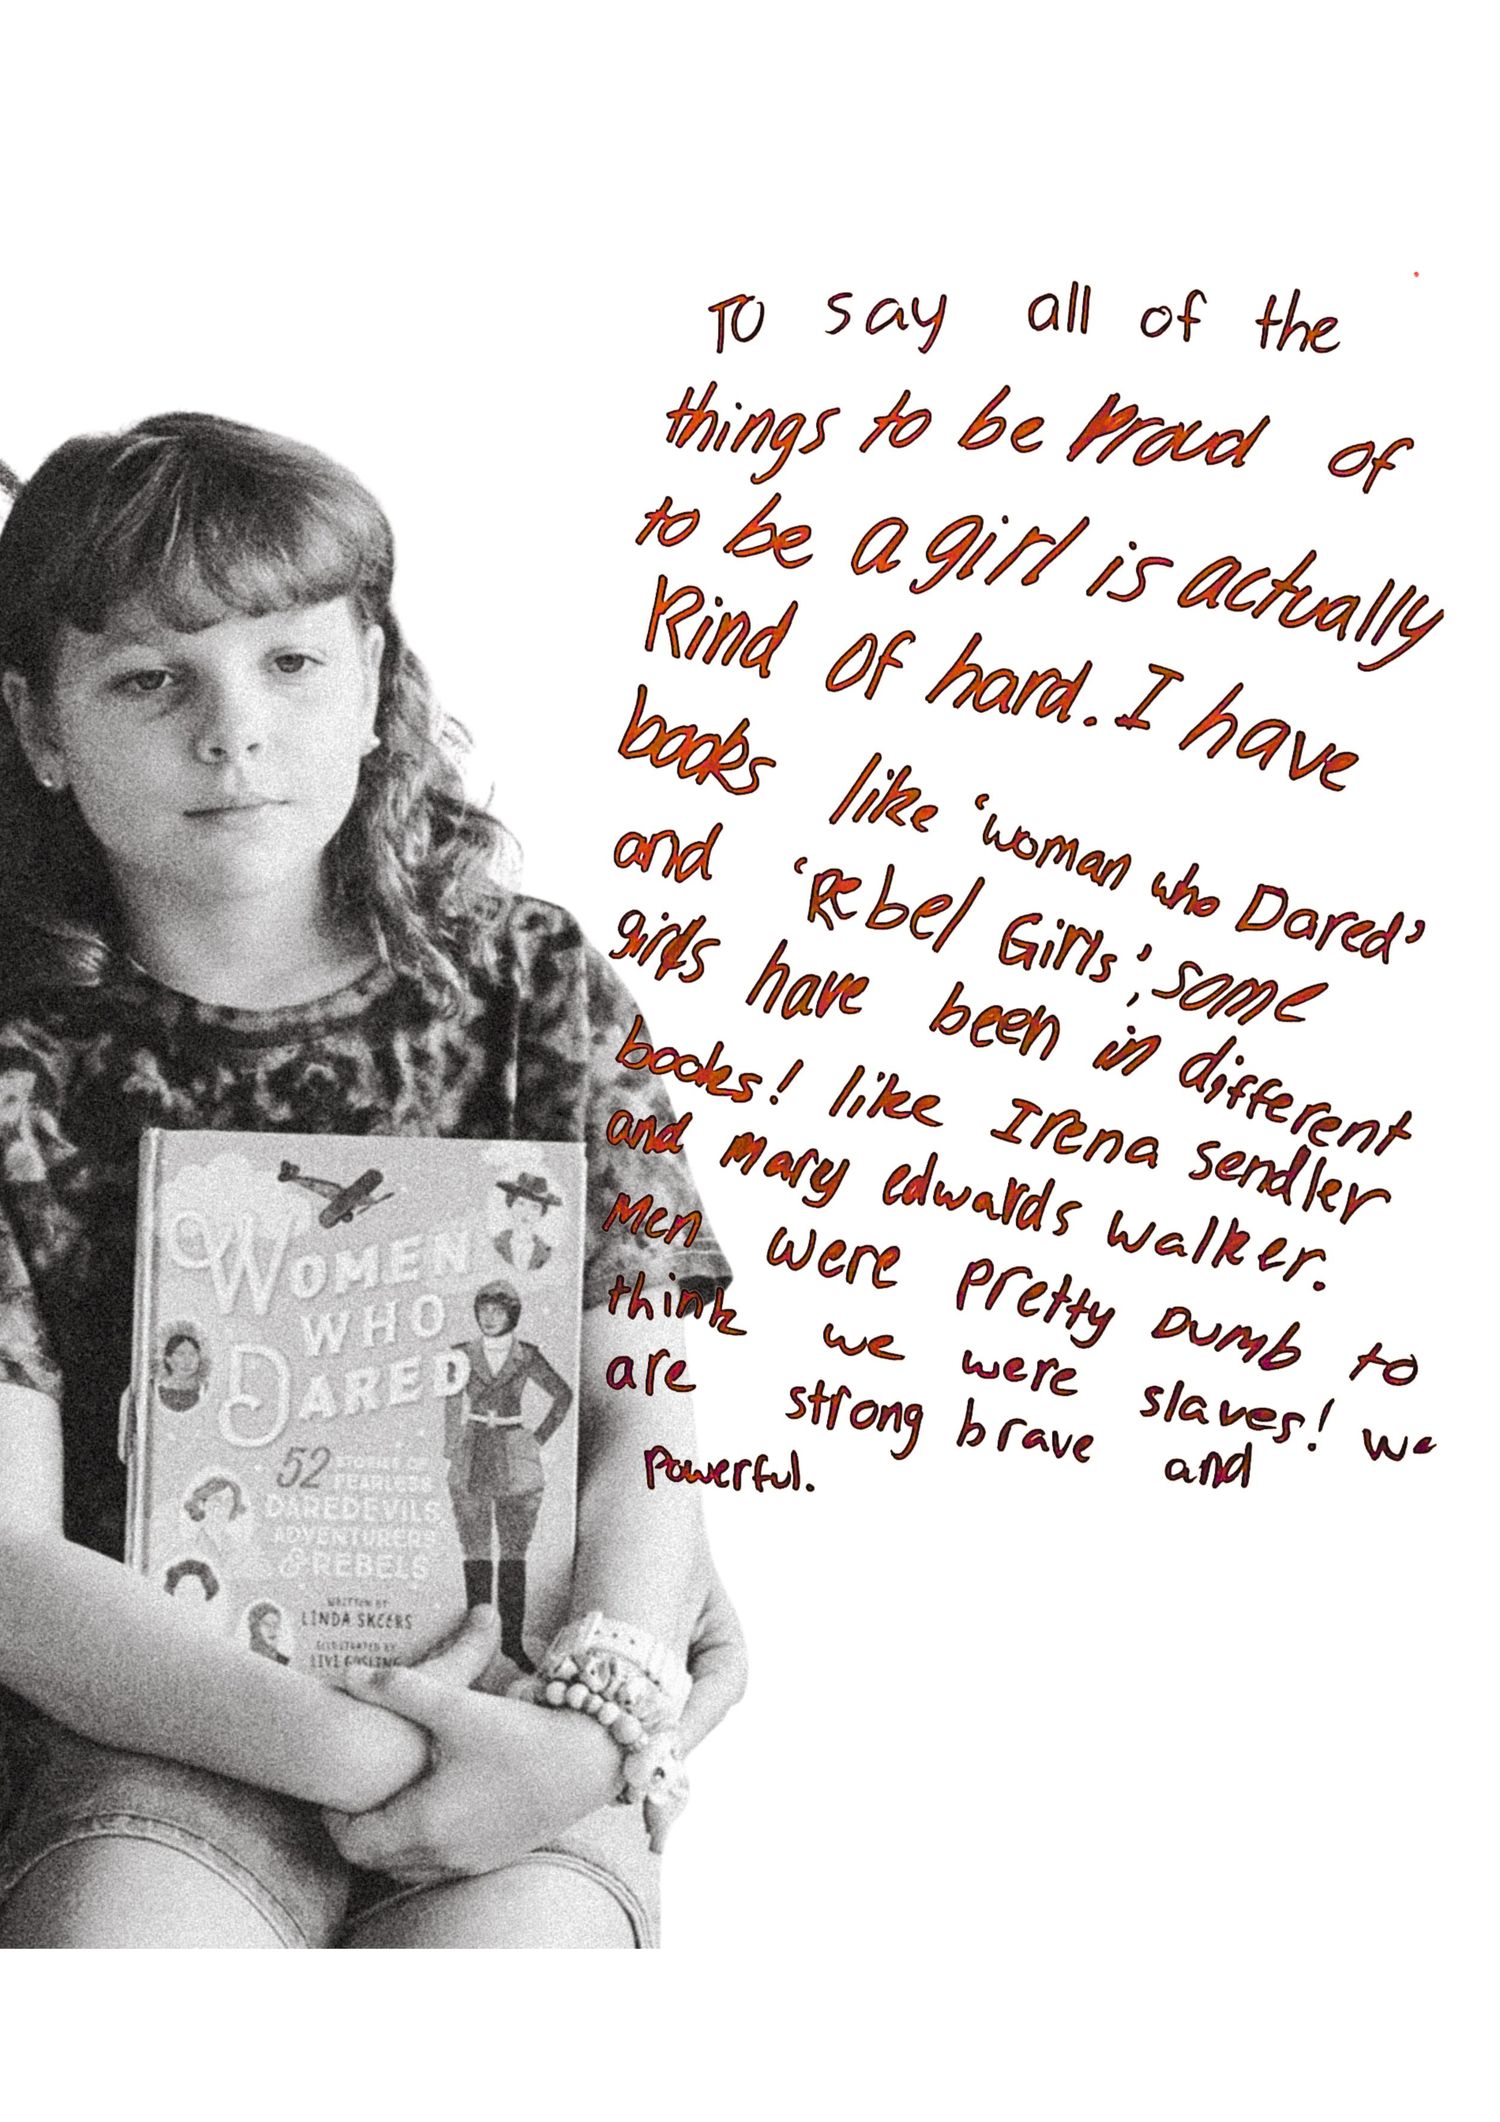 TO say all of the
things to be Proud of
to be a girl is actually
Kind of hard. I have
books like 'woman who Dared'
and 'Rebel Girls'; some
girls have been in different
books! like Irena sendler
and mary edwards walker.
Men were pretty DUMB to
think we were slaves! we
are strong brave and
powerful.
WOMEN
WHO
DARED
52
FEARLESS
DAREDEVILS,
ADVENTURERS
& REBELS
WRITTEN BY
LINDA SKEERS
ILLUSTRATED BY
LIVI GOSLING